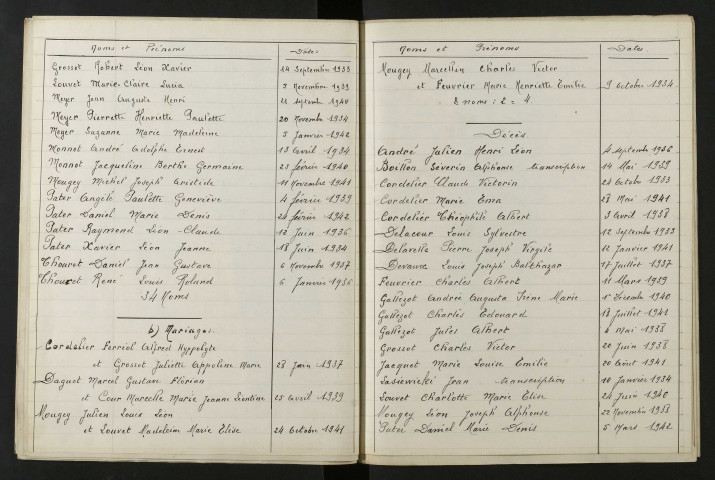 Noms et Prénoms Dates
Grosset Robert Léon Xavier 14 Septembre 1933
Louvet Marie-Claire Lucia 3 Novembre 1939
Meyer Jean Auguste Henri Septembre 1940
Meyer Pierrette Henriette Paulette 20 Novembre 1934
Meyer Suzanne Marie Madeleine 5 Janvier 1942
Monnet André Adolphe Ernest 13 Avril 1934
Monnot Jacqueline Berthe Germaine 23 février 1940
Mougey Michel Joseph Aristide 11 Novembre 1941
Pater Angèle Paulette Geneviève 4 février 1939
Pater Daniel Marie Denis 24 février 1942
Pater Raymond Léon-Claude 12 Juin 1936
Pater Xavier Léon Jeanne 18 Juin 1934
Thouvot Daniel Jean Gustave 6 Novembre 1937
Thouvot René Louis Roland 6 Janvier 1936
34 Noms
b) Mariages.
Cordelier Ferréol Alfred Hyppolyte
et Grosset Juliette Appoline Marie 28 Juin 1937
Daguet Marcel Gustave Florian
et Cour Marcelle Marie Jeanne Léontine 25 Avril 1939
Mougey Julien Louis Léon
et Louvet Madeleine Marie Elise 24 Octobre 1941
Noms et Prénoms Dates.
Mougey Marcellin Charles Victor
et Feuvrier Marie Henriette Emilie 9 Octobre 1934
8 noms : 2 = 4.
Décès.
André Julien Henri Léon 4 Septembre 1936
Boillon Séverin Alphonse transcription 14 Mai 1939
Cordelier Claude Victorin 24 Octobre 1933
Cordelier Marie Ema 28 Mai 1941
Cordelier Théophile Albert 3 Avril 1938
Delacour Louis Sylvestre 12 Septembre 1933
Delavelle Pierre Joseph Virgile 12 Janvier 1941
Devaux Louis Joseph Balthazar 17 Juillet 1937
Feuvrier Charles Albert 11 Mars 1939
Gallezot Andrée Augusta Irène Marie 1er Décembre 1940
Gallezot Charles Edouard 18 Juillet 1941
Gallezot Jules Albert Mai 1938
Grosset Charles Victor 20 Juin 1938
Jacquet Marie Louise Emilie 20 Août 1941
Jean transcription 10 Janvier 1934
Louvet Charlotte Marie Elise 24 Juin 1940
Mougey Léon Joseph Alphonse 22 Novembre 1938
Pater Daniel Marie Denis 5 Mars 1942